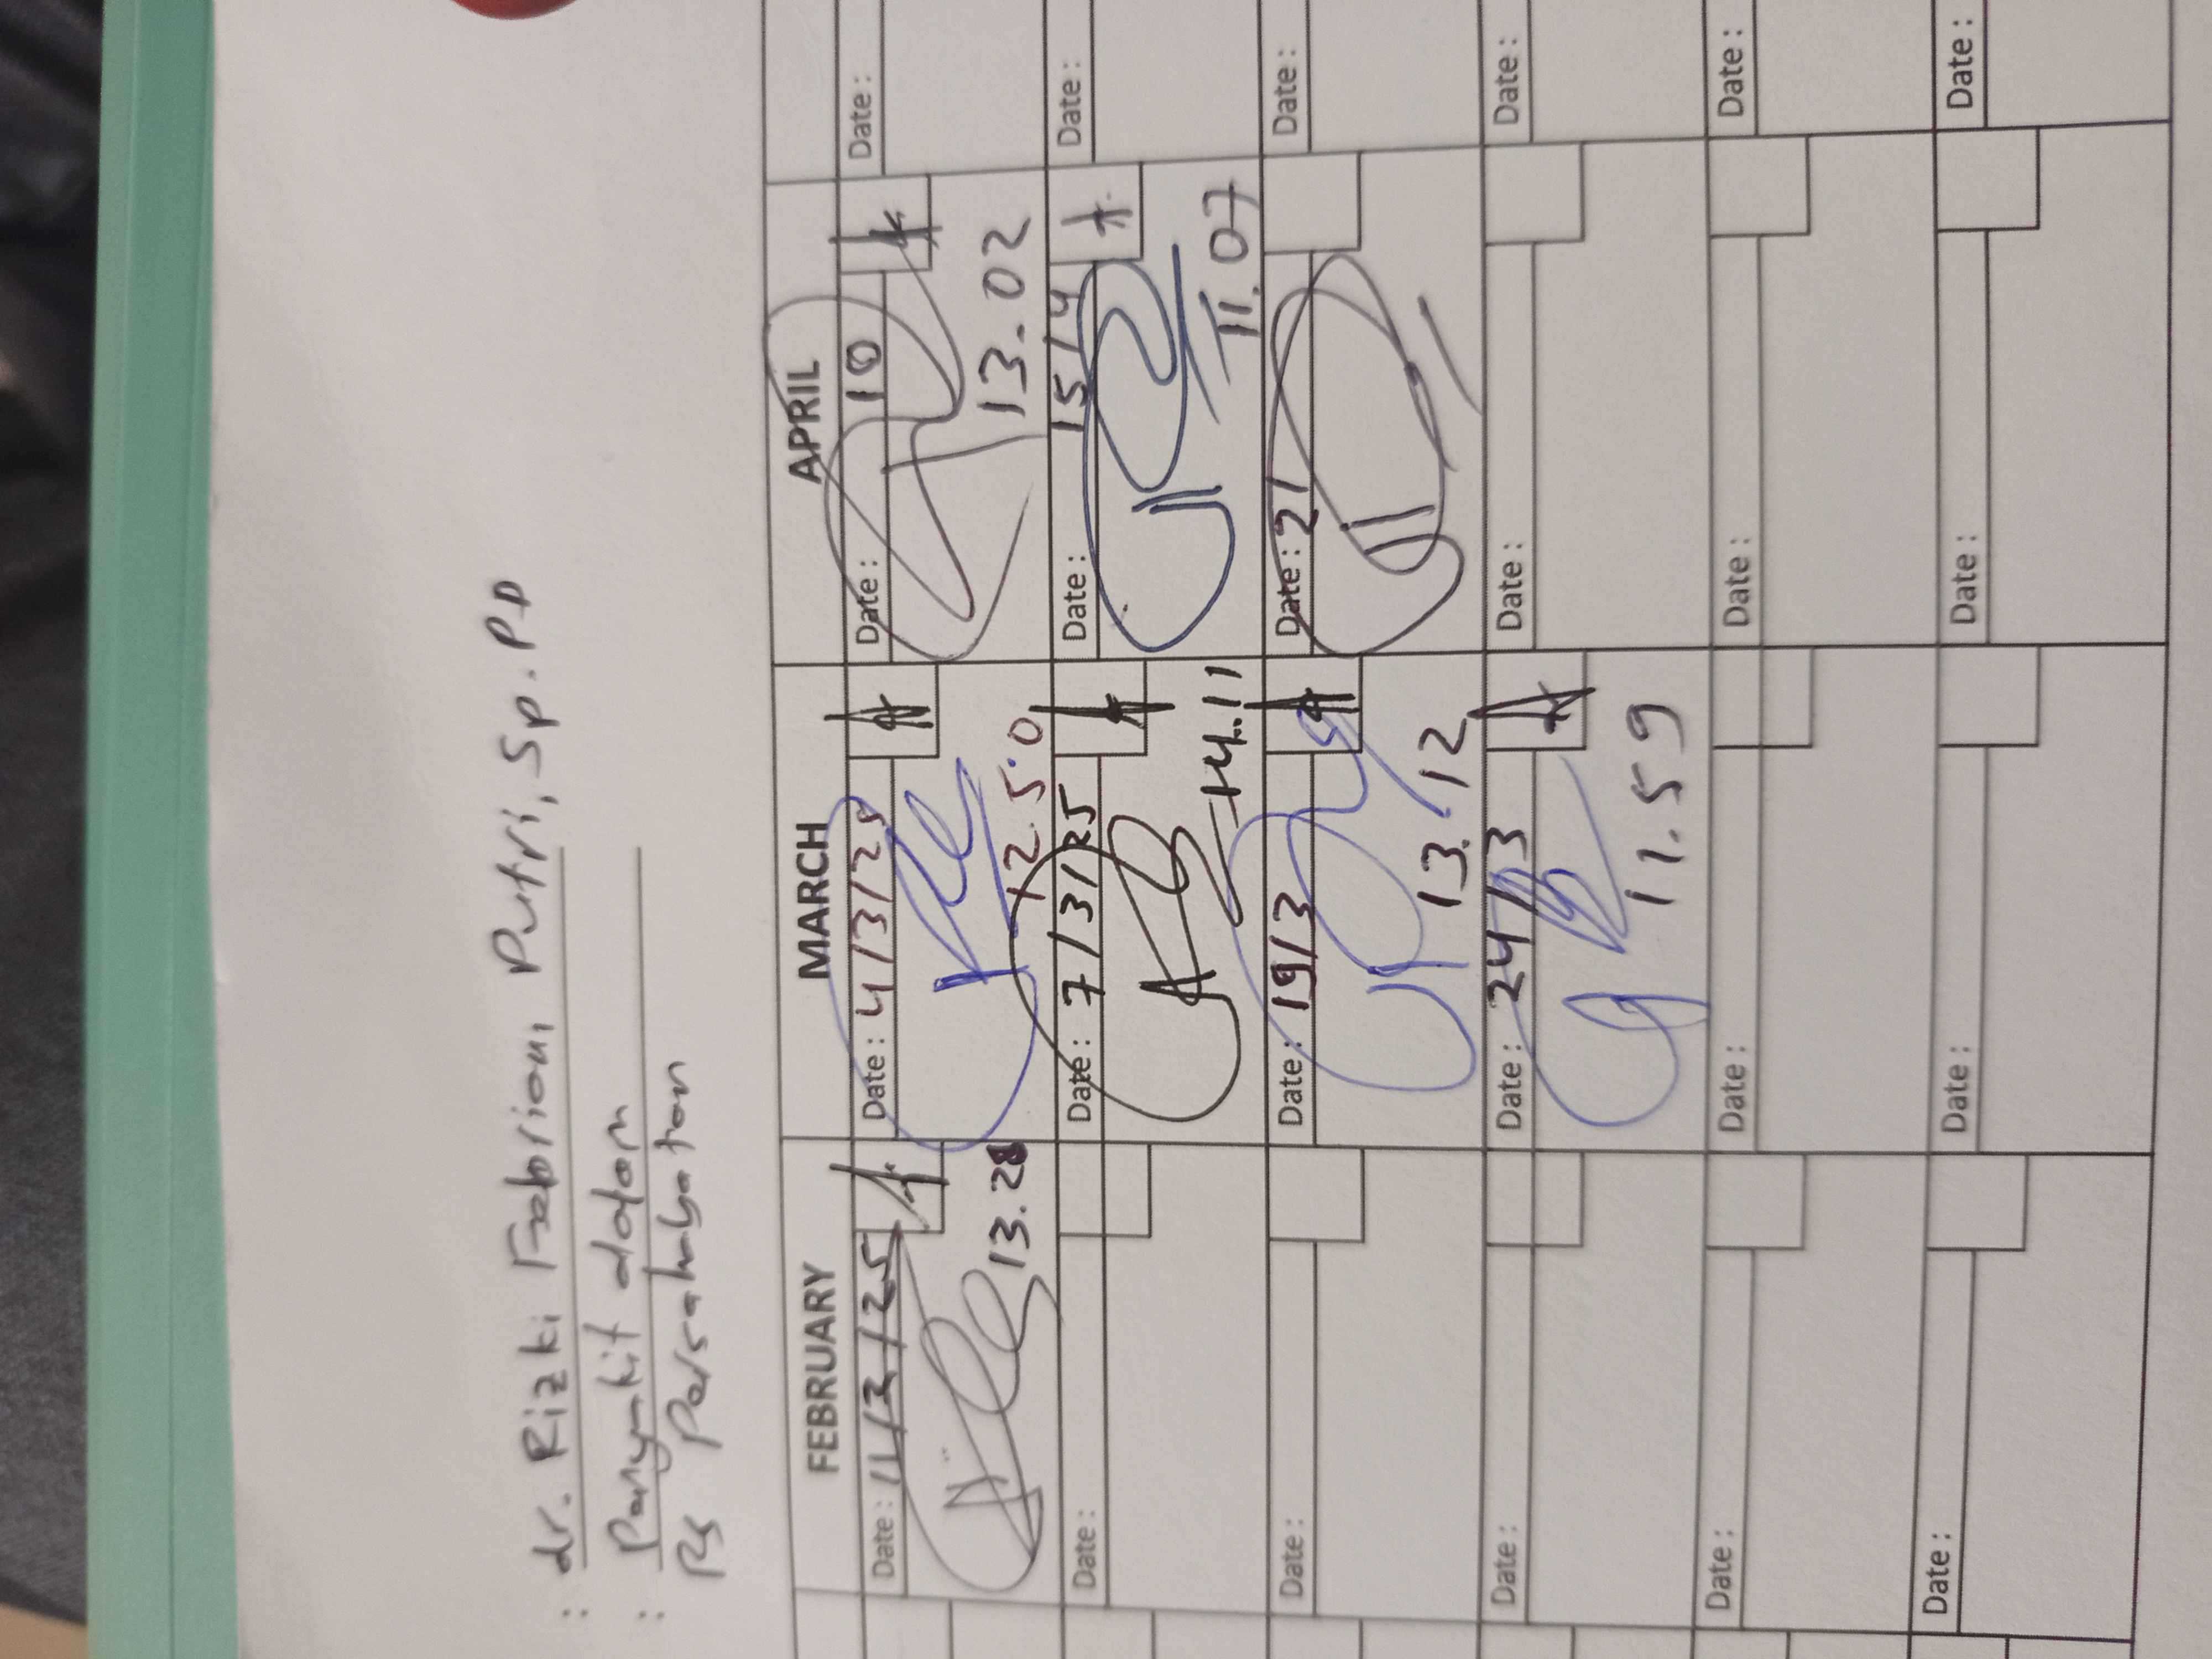 : dr. Rizki Febriani Putri, Sp. PD
: Penyakit dalam
RS Persahabatan
FEBRUARY MARCH APRIL
Date : 11/2/25 Date : 4/3/25 Date : 10 Date :
13.28 12.50 13.02
Date : Date : 7/3/25 Date : 15/4 Date :
14.11 11.07
Date : Date : 19/3 Date : 21 Date :
13.12
Date : Date : 24/3 Date : Date :
11.59
Date : Date : Date : Date :
Date : Date : Date : Date :